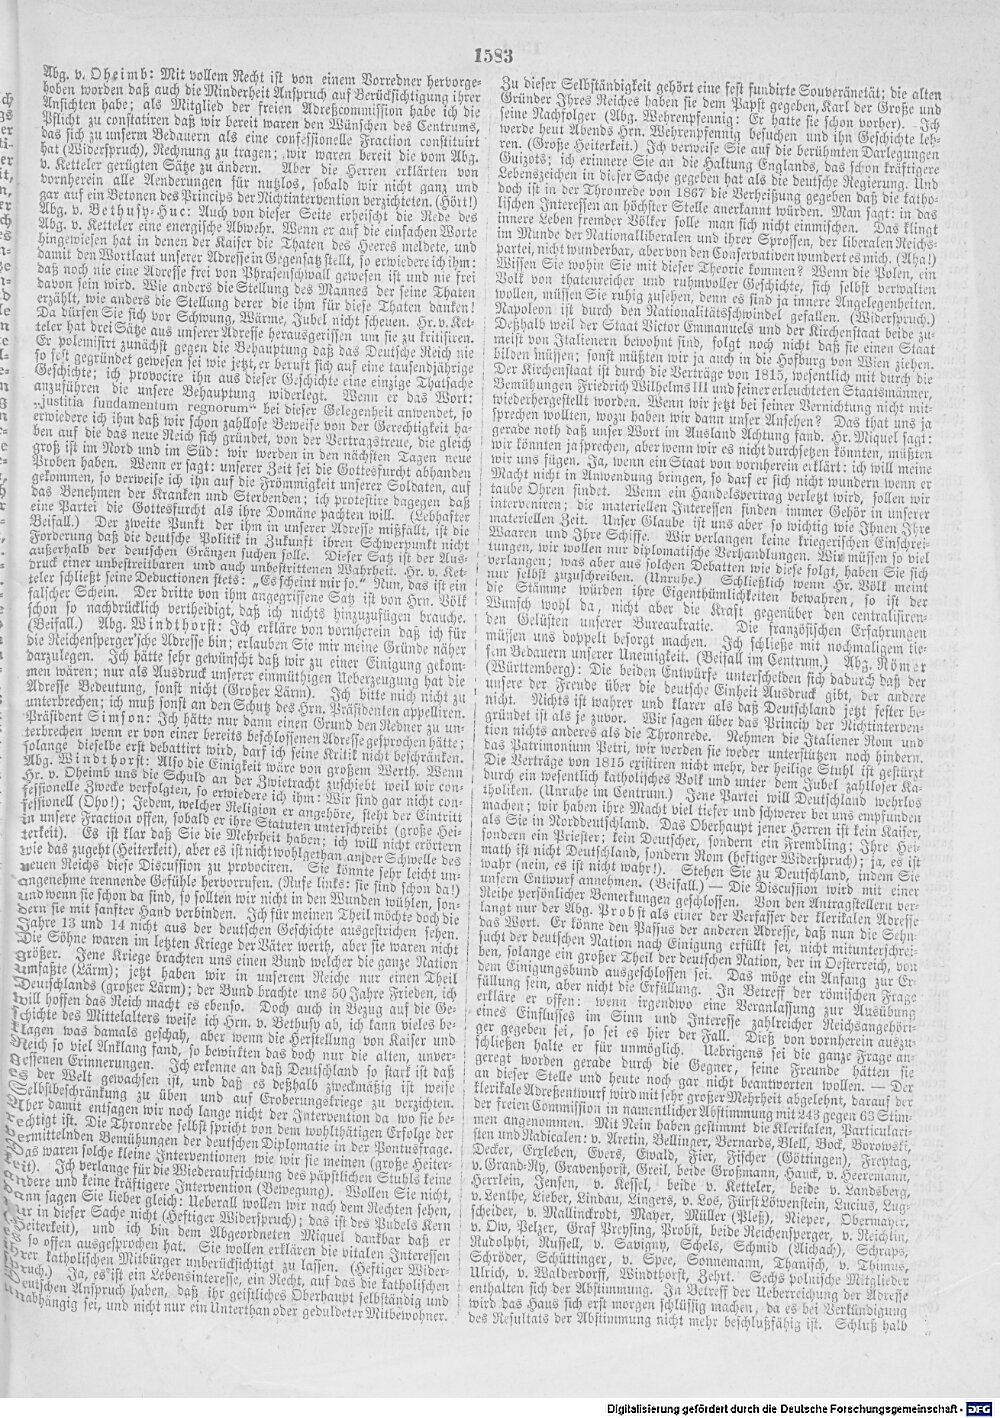 1583
Abg. v. Oheimb: Mit vollem Recht ist von einem Vorredner hervorge-
hoben worden daß auch die Minderheit Anspruch auf Berücksichtigung ihrer
Ansichten habe; als Mitglied der freien Adreßcommission habe ich die
Pflicht zu constatiren daß wir bereit waren den Wünschen des Centrums,
das sich zu unserm Bedauern als eine confessionelle Fraction constituirt
hat (Widerspruch), Rechnung zu tragen; wir waren bereit die vom Abg.
v. Ketteler gerügten Sätze zu ändern. Aber die Herren erklärten von
vornherein alle Aenderungen für nutzlos, sobald wir nicht ganz und
gar auf ein Betonen des Princips der Nichtintervention verzichteten. (Hört!)
Abg. v. Bethusy-Huc: Auch von dieser Seite erheischt die Rede des
Abg. v. Ketteler eine energische Abwehr. Wenn er auf die einfachen Worte
hingewiesen hat in denen der Kaiser die Thaten des Heeres meldete, und
damit den Wortlaut unserer Adresse in Gegensatz stellt, so erwiedere ich ihm:
daß noch nie eine Adresse frei von Phrasenschwall gewesen ist und nie frei
davon sein wird. Wie anders die Stellung des Mannes der seine Thaten
erzählt, wie anders die Stellung derer die ihm für diese Thaten danken!
Da dürfen Sie sich vor Schwung, Wärme, Jubel nicht scheuen. Hr. v. Ket-
teler hat drei Sätze aus unserer Adresse herausgerissen um sie zu kritisiren.
Er polemisirt zunächst gegen die Behauptung daß das Deutsche Reich nie
so fest gegründet gewesen sei wie jetzt, er beruft sich auf eine tausendjährige
Geschichte; ich provocire ihn aus dieser Geschichte eine einzige Thatsache
anzuführen die unsere Behauptung widerlegt. Wenn er das Wort:
„justitia fundamentum regnorum“ bei dieser Gelegenheit anwendet, so
erwiedere ich ihm daß wir schon zahllose Beweise von der Gerechtigkeit ha-
ben auf die das neue Reich sich gründet, von der Vertragstreue, die gleich
groß ist im Nord und im Süd: wir werden in den nächsten Tagen neue
Proben haben. Wenn er sagt: unserer Zeit sei die Gottesfurcht abhanden
gekommen, so verweise ich ihn auf die Frömmigkeit unserer Soldaten, auf
das Benehmen der Kranken und Sterbenden; ich protestire dagegen daß
eine Partei die Gottesfurcht als ihre Domäne pachten will. (Lebhafter
Beifall.) Der zweite Punkt der ihm in unserer Adresse mißfällt, ist die
Forderung daß die deutsche Politik in Zukunft ihren Schwerpunkt nicht
außerhalb der deutschen Gränzen suchen solle. Dieser Satz ist der Aus-
druck einer unbestreitbaren und auch unbestrittenen Wahrheit. Hr. v. Ket-
teler schließt seine Deductionen stets: „Es scheint mir so.“ Nun, das ist ein
falscher Schein. Der dritte von ihm angegriffene Satz ist von Hrn. Völk
schon so nachdrücklich vertheidigt, daß ich nichts hinzuzufügen brauche.
(Beifall.) Abg. Windthorst: Ich erkläre von vornherein daß ich für
die Reichensperger'sche Adresse bin; erlauben Sie mir meine Gründe näher
darzulegen. Ich hätte sehr gewünscht daß wir zu einer Einigung gekom-
men wären; nur als Ausdruck unserer einmüthigen Ueberzeugung hat die
Adresse Bedeutung, sonst nicht (Großer Lärm). Ich bitte mich nicht zu
unterbrechen; ich muß sonst an den Schutz des Hrn. Präsidenten appelliren.
Präsident Simson: Ich hätte nur dann einen Grund den Redner zu un-
terbrechen wenn er von einer bereits beschlossenen Adresse gesprochen hätte;
solange dieselbe erst debattirt wird, darf ich seine Kritik nicht beschränken.
Abg. Windthorst: Also die Einigkeit wäre von großem Werth. Wenn
Hr. v. Oheimb uns die Schuld an der Zwietracht zuschiebt weil wir con-
fessionelle Zwecke verfolgten, so erwiedere ich ihm: Wir sind gar nicht con-
fessionell (Oho!); Jedem, welcher Religion er angehöre, steht der Eintritt
in unsere Fraction offen, sobald er ihre Statuten unterschreibt (große Hei-
terkeit). Es ist klar daß Sie die Mehrheit haben; ich will nicht erörtern
wie das zugeht (Heiterkeit), aber es ist nicht wohlgethan an der Schwelle des
neuen Reichs diese Discussion zu provociren. Sie könnte sehr leicht un-
angenehme trennende Gefühle hervorrufen. (Rufe links: sie sind schon da!)
und wenn sie schon da sind, so sollten wir nicht in den Wunden wühlen, son-
dern sie mit sanfter Hand verbinden. Ich für meinen Theil möchte doch die
Jahre 13 und 14 nicht aus der deutschen Geschichte ausgestrichen sehen.
Die Söhne waren im letzten Kriege der Väter werth, aber sie waren nicht
größer. Jene Kriege brachten uns einen Bund welcher die ganze Nation
umfaßte (Lärm); jetzt haben wir in unserem Reiche nur einen Theil
Deutschlands (großer Lärm); der Bund brachte uns 50 Jahre Frieden, ich
will hoffen das Reich macht es ebenso. Doch auch in Bezug auf die Ge-
schichte des Mittelalters weise ich Hrn. v. Bethusy ab, ich kann vieles be-
klagen was damals geschah, aber wenn die Herstellung von Kaiser und
Reich so viel Anklang fand, so bewirkten das doch nur die alten, unver-
gessenen Erinnerungen. Ich erkenne an daß Deutschland so stark ist daß
es der Welt gewachsen ist, und daß es deßhalb zweckmäßig ist weise
Selbstbeschränkung zu üben und auf Eroberungskriege zu verzichten.
Aber damit entsagen wir noch lange nicht der Intervention da wo sie be-
rechtigt ist. Die Thronrede selbst spricht von dem wohlthätigen Erfolge der
vermittelnden Bemühungen der deutschen Diplomatie in der Pontusfrage.
Das waren solche kleine Interventionen wie wir sie meinen (große Heiter-
keit). Ich verlange für die Wiederaufrichtung des päpstlichen Stuhls keine
andere und keine kräftigere Intervention (Bewegung). Wollen Sie nicht,
dann sagen Sie lieber gleich: Ueberall wollen wir nach dem Rechten sehen,
nur in dieser Sache nicht (Heftiger Widerspruch); das ist des Pudels Kern
(Heiterkeit), und ich bin dem Abgeordneten Miquel dankbar daß er
es so offen ausgesprochen hat. Sie wollen erklären die vitalen Interessen
Ihrer katholischen Mitbürger unberücksichtigt zu lassen. (Heftiger Wider-
spruch.) Ja, es ist ein Lebensinteresse, ein Recht, auf das die katholischen
Deutschen Anspruch haben, daß ihr geistliches Oberhaupt selbständig und
unabhängig sei, und nicht nur ein Unterthan oder geduldeter Mitbewohner.
Zu dieser Selbständigkeit gehört eine fest fundirte Souveränetät; die alten
Gründer Ihres Reiches haben sie dem Papst gegeben, Karl der Große und
seine Nachfolger (Abg. Wehrenpfennig: Er hatte sie schon vorher). — Ich
werde heut Abends Hrn. Wehrenpfennig besuchen und ihn Geschichte leh-
ren. (Große Heiterkeit.) Ich verweise Sie auf die berühmten Darlegungen
Guizots; ich erinnere Sie an die Haltung Englands, das schon kräftigere
Lebenszeichen in dieser Sache gegeben hat als die deutsche Regierung. Und
doch ist in der Thronrede von 1867 die Verheißung gegeben daß die katho-
lischen Interessen an höchster Stelle anerkannt würden. Man sagt: in das
innere Leben fremder Völker solle man sich nicht einmischen. Das klingt
im Munde der Nationalliberalen und ihrer Sprossen, der liberalen Reichs-
partei, nicht wunderbar, aber von den Conservativen wundert es mich. (Aha!)
Wissen Sie wohin Sie mit dieser Theorie kommen? Wenn die Polen, ein
Volk von thatenreicher und ruhmvoller Geschichte, sich selbst verwalten
wollen, müssen Sie ruhig zusehen, denn es sind ja innere Angelegenheiten.
Napoleon ist durch den Nationalitätsschwindel gefallen. (Widerspruch.)
Deßhalb weil der Staat Victor Emmanuels und der Kirchenstaat beide zu-
meist von Italienern bewohnt sind, folgt noch nicht daß sie einen Staat
bilden müssen; sonst müßten wir ja auch in die Hofburg von Wien ziehen.
Der Kirchenstaat ist durch die Verträge von 1815, wesentlich mit durch die
Bemühungen Friedrich Wilhelms III und seiner erleuchteten Staatsmänner,
wiederhergestellt worden. Wenn wir jetzt bei seiner Vernichtung nicht mit-
sprechen wollten, wozu haben wir dann unser Ansehen? Das that uns ja
gerade noth daß unser Wort im Ausland Achtung fand. Hr. Miquel sagt:
wir könnten ja sprechen, aber wenn wir es nicht durchsetzen könnten, müßten
wir uns fügen. Ja, wenn ein Staat von vornherein erklärt: ich will meine
Macht nicht in Anwendung bringen, so darf er sich nicht wundern wenn er
taube Ohren findet. Wenn ein Handelsvertrag verletzt wird, sollen wir
interveniren; die materiellen Interessen finden immer Gehör in unserer
materiellen Zeit. Unser Glaube ist uns aber so wichtig wie Ihnen Ihre
Waaren und Ihre Schiffe. Wir verlangen keine kriegerischen Einschrei-
tungen, wir wollen nur diplomatische Verhandlungen. Wir müssen so viel
verlangen; was aber aus solchen Debatten wie diese folgt, haben Sie sich
nur selbst zuzuschreiben. (Unruhe.) Schließlich wenn Hr. Völk meint
die Stämme würden ihre Eigenthümlichkeiten bewahren, so ist der
Wunsch wohl da, nicht aber die Kraft gegenüber den centralisiren-
den Gelüsten unserer Bureaukratie. Die französischen Erfahrungen
müssen uns doppelt besorgt machen. Ich schließe mit nochmaligem tie-
fem Bedauern unserer Uneinigkeit. (Beifall im Centrum.) Abg. Römer
(Württemberg): Die beiden Entwürfe unterscheiden sich dadurch daß der
unsere der Freude über die deutsche Einheit Ausdruck gibt, der andere
nicht. Nichts ist wahrer und klarer als daß Deutschland jetzt fester be-
gründet ist als je zuvor. Wir sagen über das Princip der Nichtinterven-
tion nichts anderes als die Thronrede. Nehmen die Italiener Rom und
das Patrimonium Petri, wir werden sie weder unterstützen noch hindern.
Die Verträge von 1815 existiren nicht mehr, der heilige Stuhl ist gestürzt
durch ein wesentlich katholisches Volk und unter dem Jubel zahlloser Ka-
tholiken. (Unruhe im Centrum.) Jene Partei will Deutschland wehrlos
machen; wir haben ihre Macht viel tiefer und schwerer bei uns empfunden
als Sie in Norddeutschland. Das Oberhaupt jener Herren ist kein Kaiser,
sondern ein Priester; kein Deutscher, sondern ein Fremdling; Ihre Hei-
math ist nicht Deutschland, sondern Rom (heftiger Widerspruch); ja, es ist
wahr (nein, es ist nicht wahr!). Stehen Sie zu Deutschland, indem Sie
unsern Entwurf annehmen. (Beifall.) — Die Discussion wird mit einer
Reihe persönlicher Bemerkungen geschlossen. Von den Antragstellern ver-
langt nur der Abg. Probst als einer der Verfasser der klerikalen Adresse
das Wort. Er könne den Passus der anderen Adresse, daß nun die Sehn-
sucht der deutschen Nation nach Einigung erfüllt sei, nicht mitunterschrei-
ben, solange ein großer Theil der deutschen Nation, der in Oesterreich, von
dem Einigungsbund ausgeschlossen sei. Das möge ein Anfang zur Er-
füllung sein, aber nicht die Erfüllung. In Betreff der römischen Frage
erkläre er offen: wenn irgendwo eine Veranlassung zur Ausübung
eines Einflusses im Sinn und Interesse zahlreicher Reichsangehöri-
ger gegeben sei, so sei es hier der Fall. Dieß von vornherein auszu-
schließen halte er für unmöglich. Uebrigens sei die ganze Frage an-
geregt worden gerade durch die Gegner, seine Freunde hätten sie
an dieser Stelle und heute noch gar nicht beantworten wollen. — Der
klerikale Adreßentwurf wird mit sehr großer Mehrheit abgelehnt, darauf der
der freien Commission in namentlicher Abstimmung mit 243 gegen 63 Stim-
men angenommen. Mit Nein haben gestimmt die Klerikalen, Particulari-
sten und Radicalen: v. Aretin, Bellinger, Bernards, Blell, Bock, Borowski,
Decker, Erxleben, Evers, Ewald, Fier, Fischer (Göttingen), Freytag,
v. Grand-Ry, Gravenhorst, Greil, beide Großmann, Hauck, v. Heeremann,
Herrlein, Jensen, v. Kessel, beide v. Ketteler, beide v. Landsberg,
v. Lenthe, Lieber, Lindau, Lingers, v. Los, Fürst Löwenstein, Lucius, Lug-
scheider, v. Mallinckrodt, Mayer, Müller (Pleß), Nieper, Obermayer,
v. Ow, Pelzer, Graf Preysing, Probst, beide Reichensperger, v. Reichlin,
Rudolphi, Russell, v. Savigny, Schels, Schmid (Aichach), Schraps,
Schröder, Schüttinger, v. Spee, Sonnemann, Thanisch, v. Thimus,
Ulrich, v. Walderdorff, Windthorst, Zehrt. Sechs polnische Mitglieder
enthalten sich der Abstimmung. In Betreff der Ueberreichung der Adresse
wird das Haus sich erst morgen schlüssig machen, da es bei Verkündigung
des Resultats der Abstimmung nicht mehr beschlußfähig ist. Schluß halb
Digitalisierung gefördert durch die Deutsche Forschungsgemeinschaft - DFG